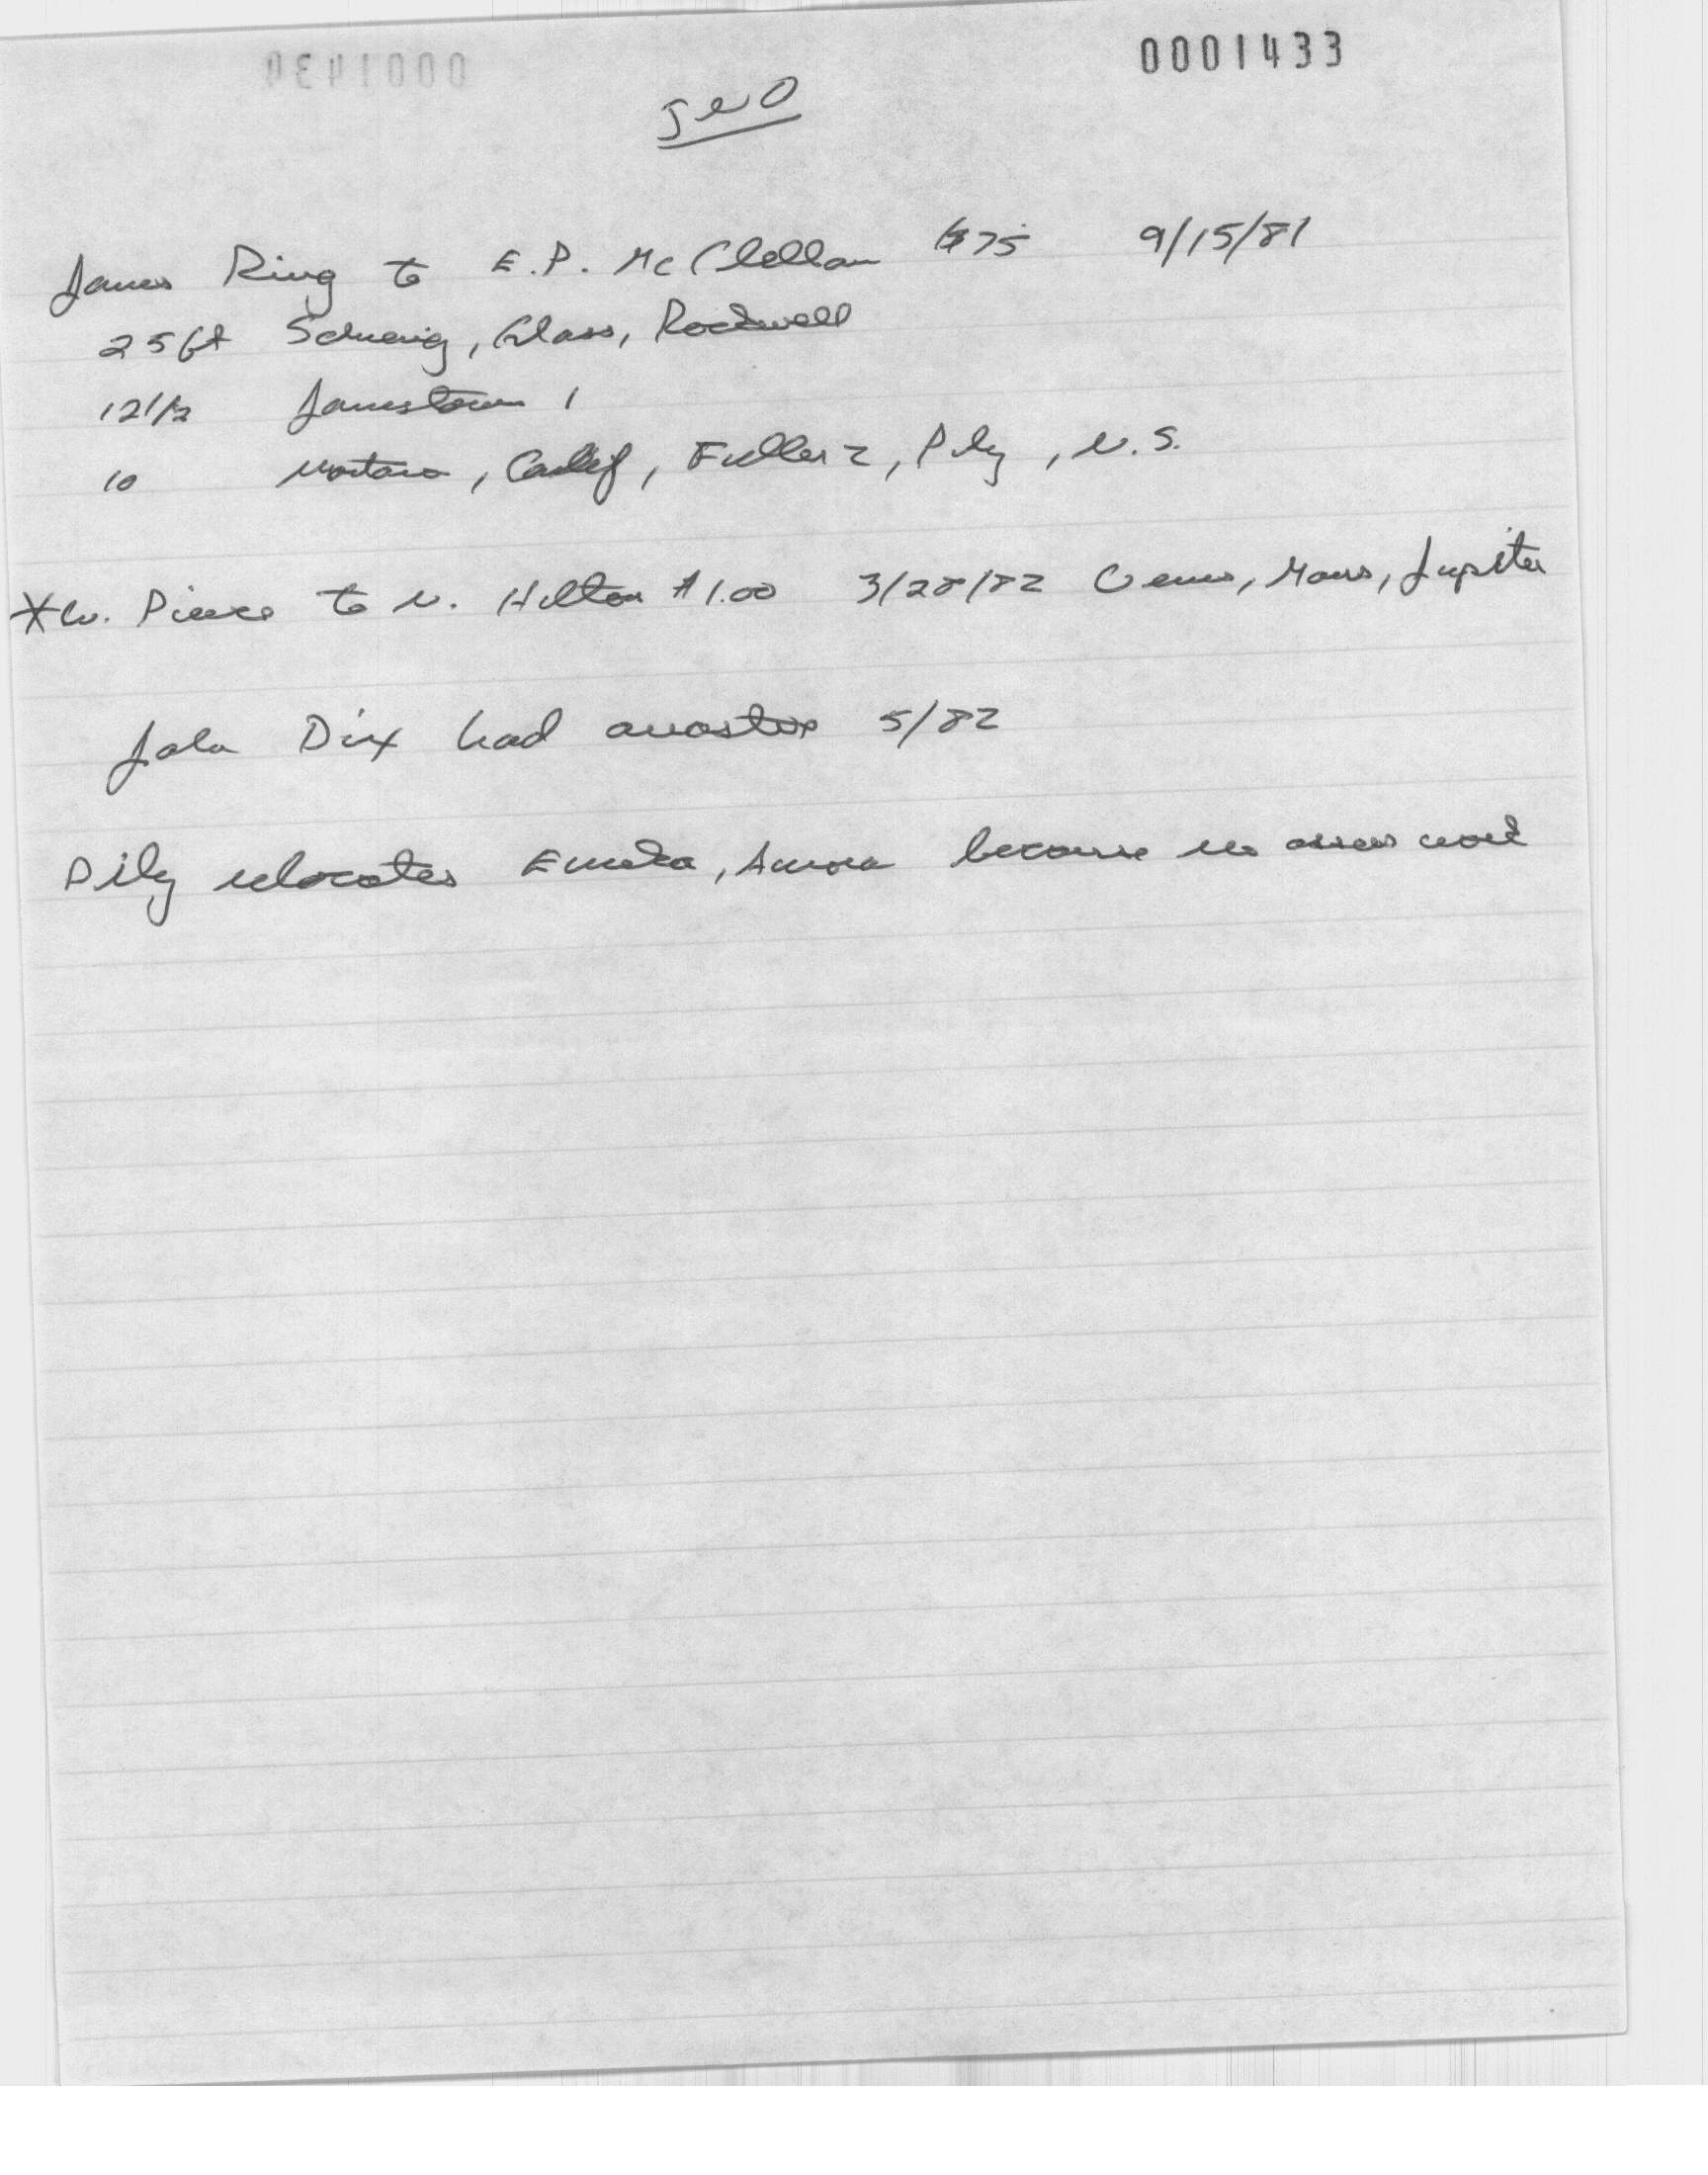 0001433
James Ring to E.P. McClellan $75 9/15/81
25 ft Schweig, Glass, Rockwell
12 1/2 Jamestown 1
10 Montana, Calif, Fuller 2, Pily, N.S.
*W. Pierce to N. Hilton $1.00 3/28/82 Venus, Mars, Jupiter
John Dix had 5/82
Pily relocates Eureka, Aurora because no assess work